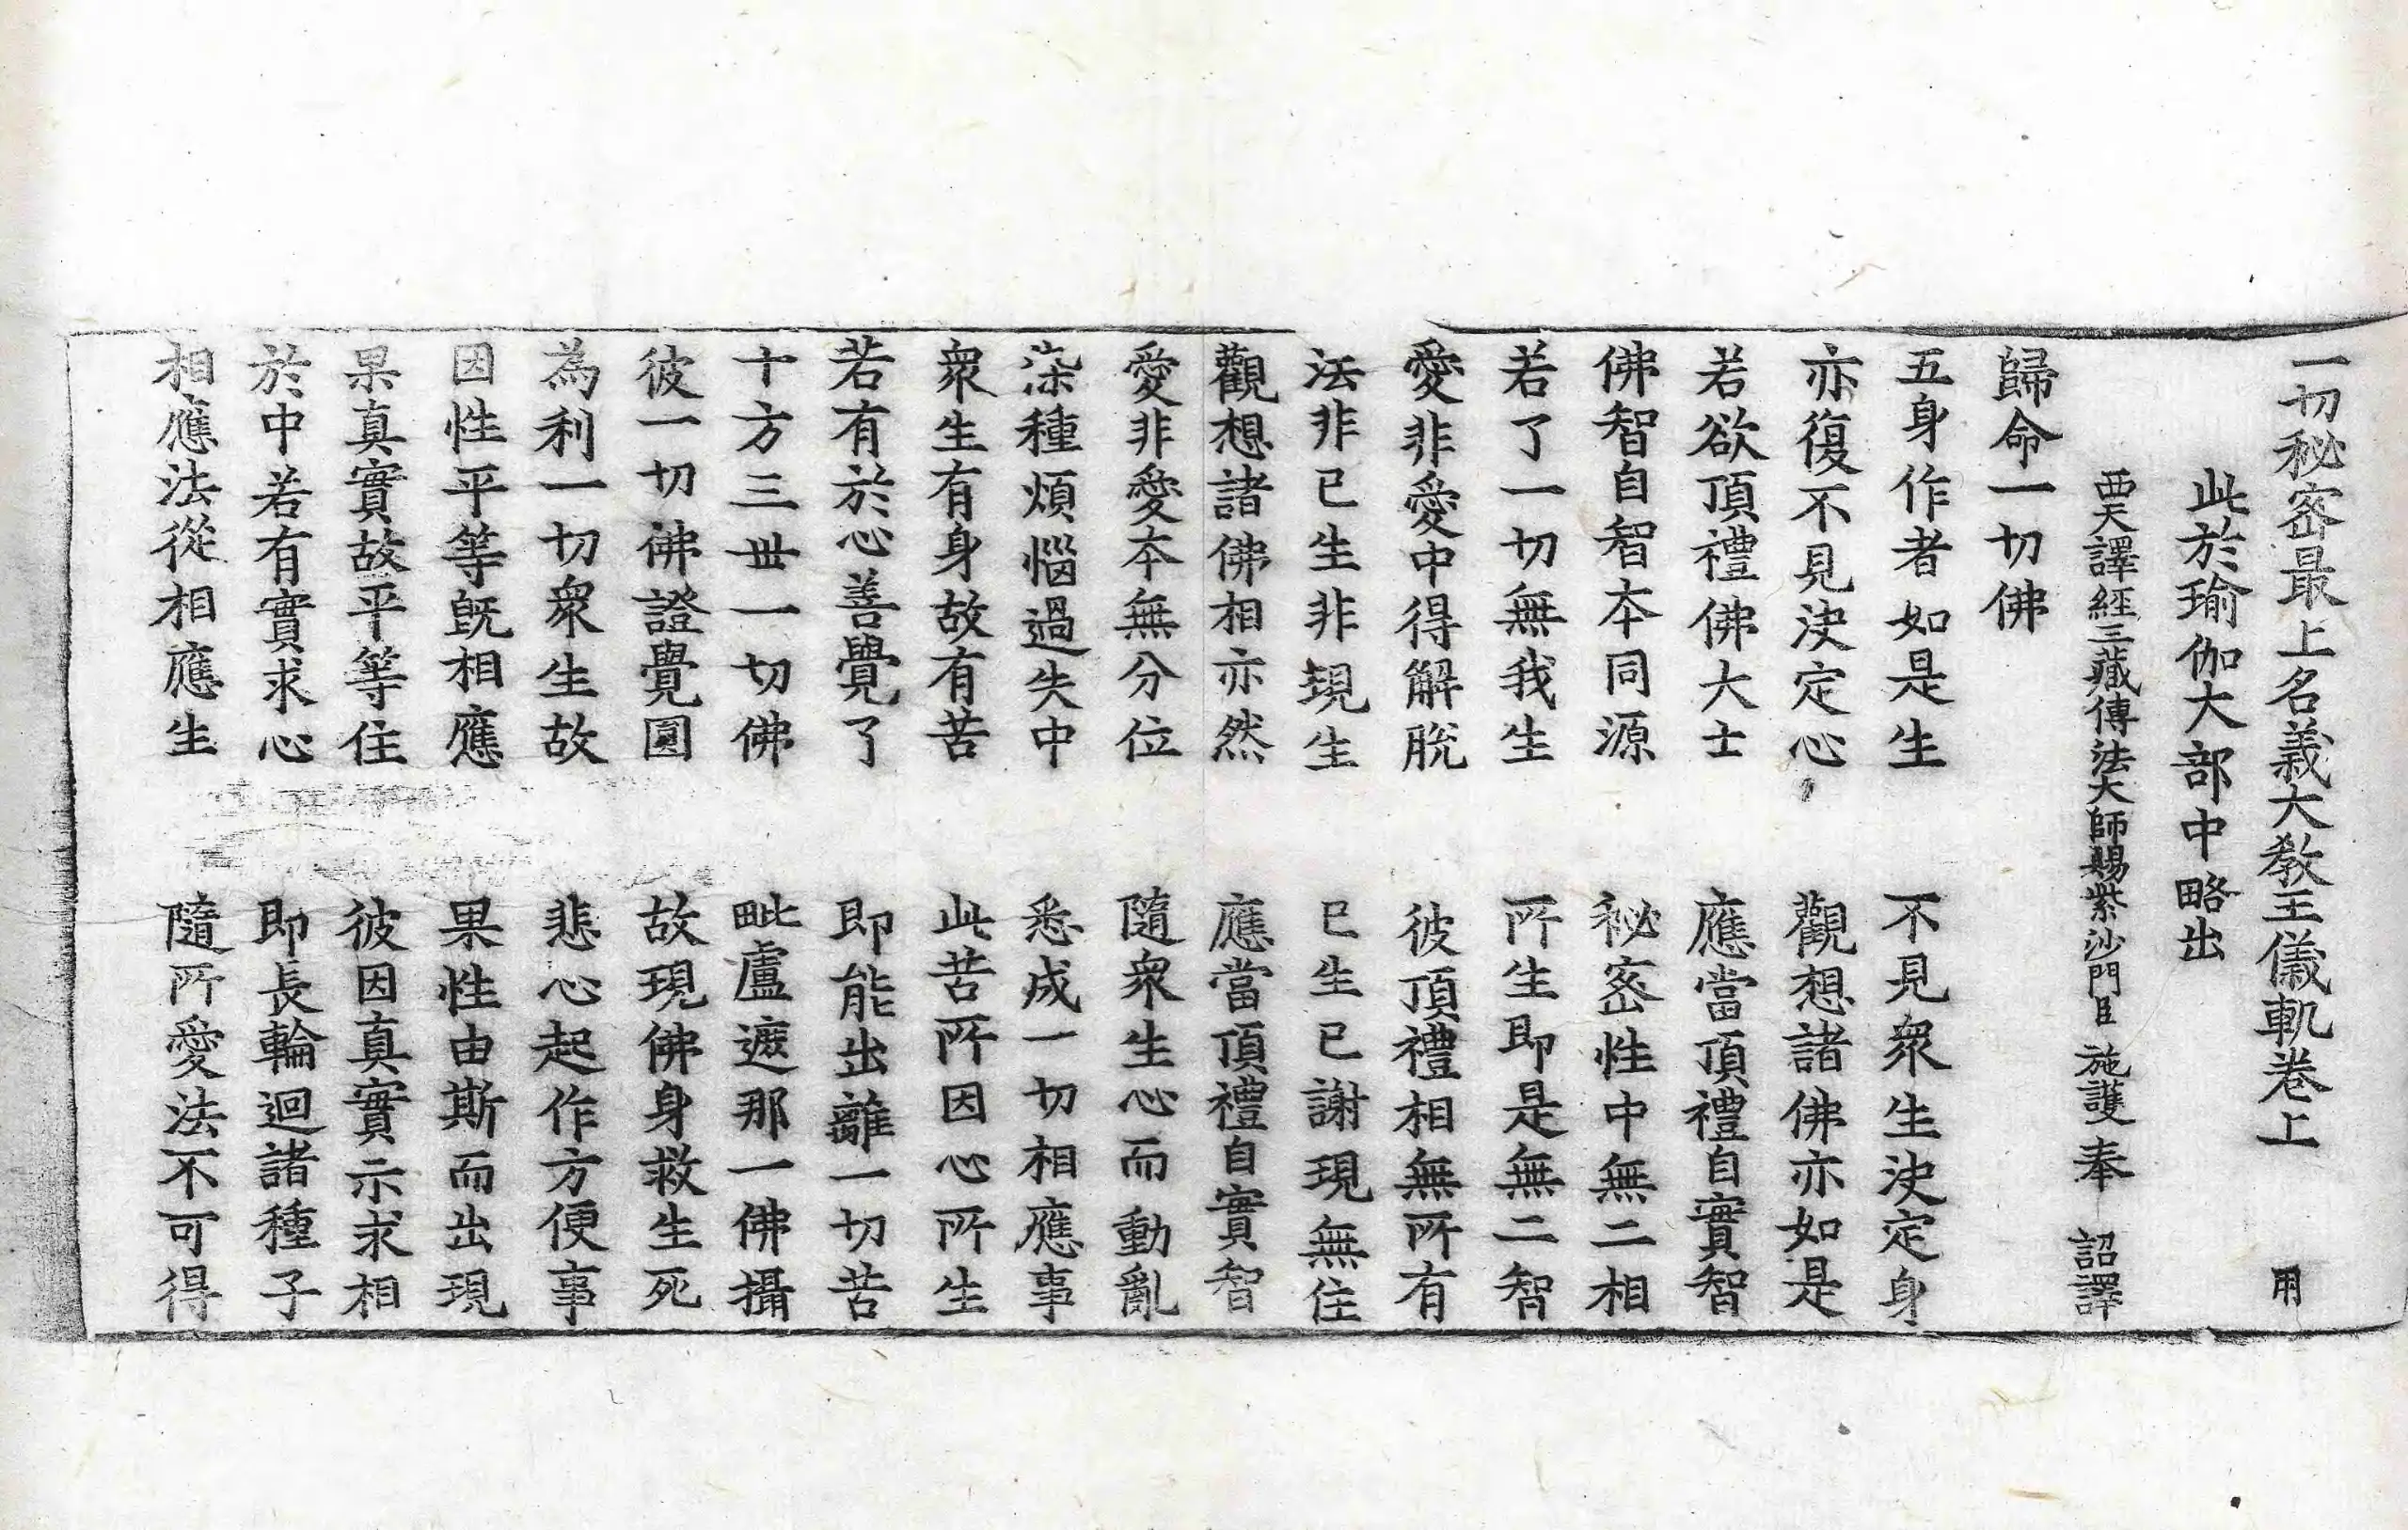 一切秘密最上名義大教王儀軌卷上 用
此於瑜伽大部中略出
西天譯經三藏傳法大師賜紫沙門臣 施護 奉 詔譯
歸命一切佛
五身作者如是生 不見衆生決定身
亦復不見決定心 觀想諸佛亦如是
若欲頂禮佛大士 應當頂禮自實智
佛智自智本同源 秘密性中無二相
若了一切無我生 所生即是無二智
愛非愛中得解脫 彼頂禮相無所有
法非已生非現生 已生已謝現無住
觀想諸佛相亦然 應當頂禮自實智
愛非愛本無分位 隨衆生心而動亂
染種煩惱過失中 悉成一切相應事
衆生有身故有苦 此苦所因心所生
若有於心善覺了 即能出離一切苦
十方三世一切佛 毗盧遮那一佛攝
彼一切佛證覺圓 故現佛身救生死
為利一切衆生故 悲心起作方便事
因性平等既相應 果性由斯而出現
果真實故平等住 彼因真實示求相
於中若有實求心 即長輪迴諸種子
相應法從相應生 隨所愛法不可得